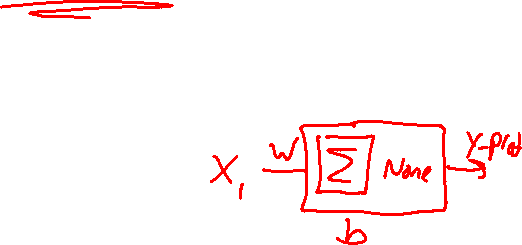 X₁ W Σ None y-pred
b